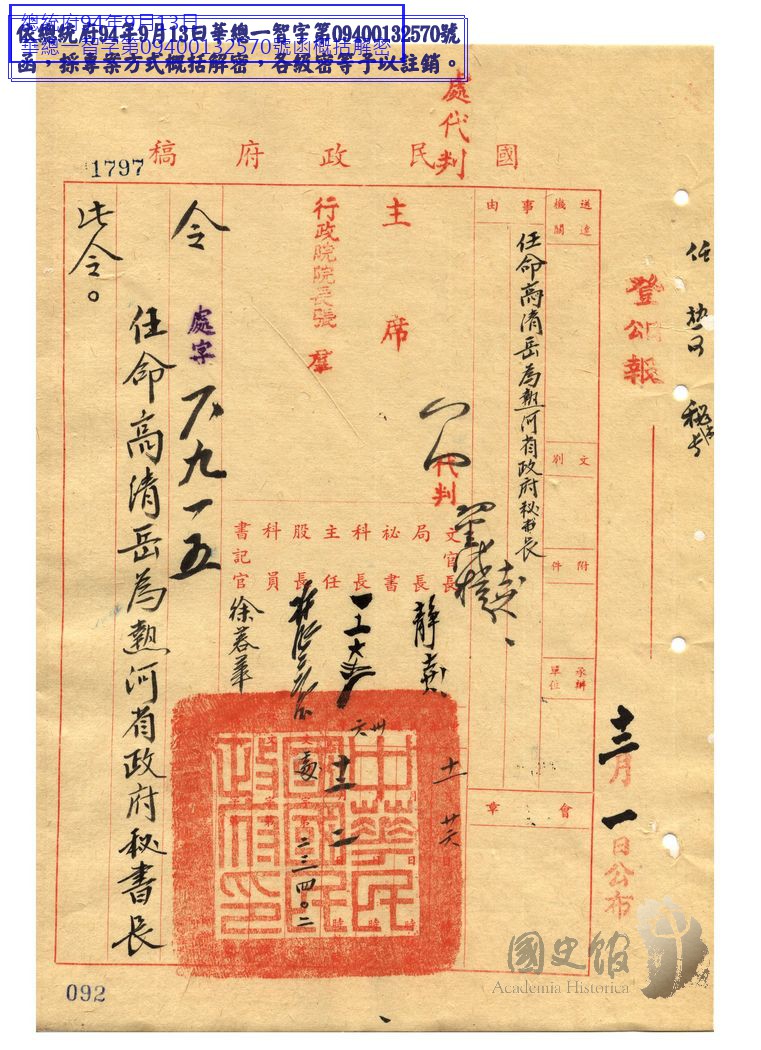 總統府94年9月13日
華總一智字第09400132570號函概括解密
依總統府94年9月13日華總一智字第09400132570號
函，採專案方式概括解密，各級密等予以註銷。
處代判
國民政府稿
1797
任熱河
登公報
十二月一日公布
送達機關
文別
附件
承辦單位
事由
任命高清岳為熱河省政府秘書長
會章
主席
代判
行政院院長張群
文官長
局長
秘書
科長
主任
股長
科員
書記官
徐慕華
十一
廿六
十二
二
二三四〇二
令
處字
九一五
任命高清岳為熱河省政府秘書長
此令。
中華民國國民政府印
092
國史館
Academia Historica